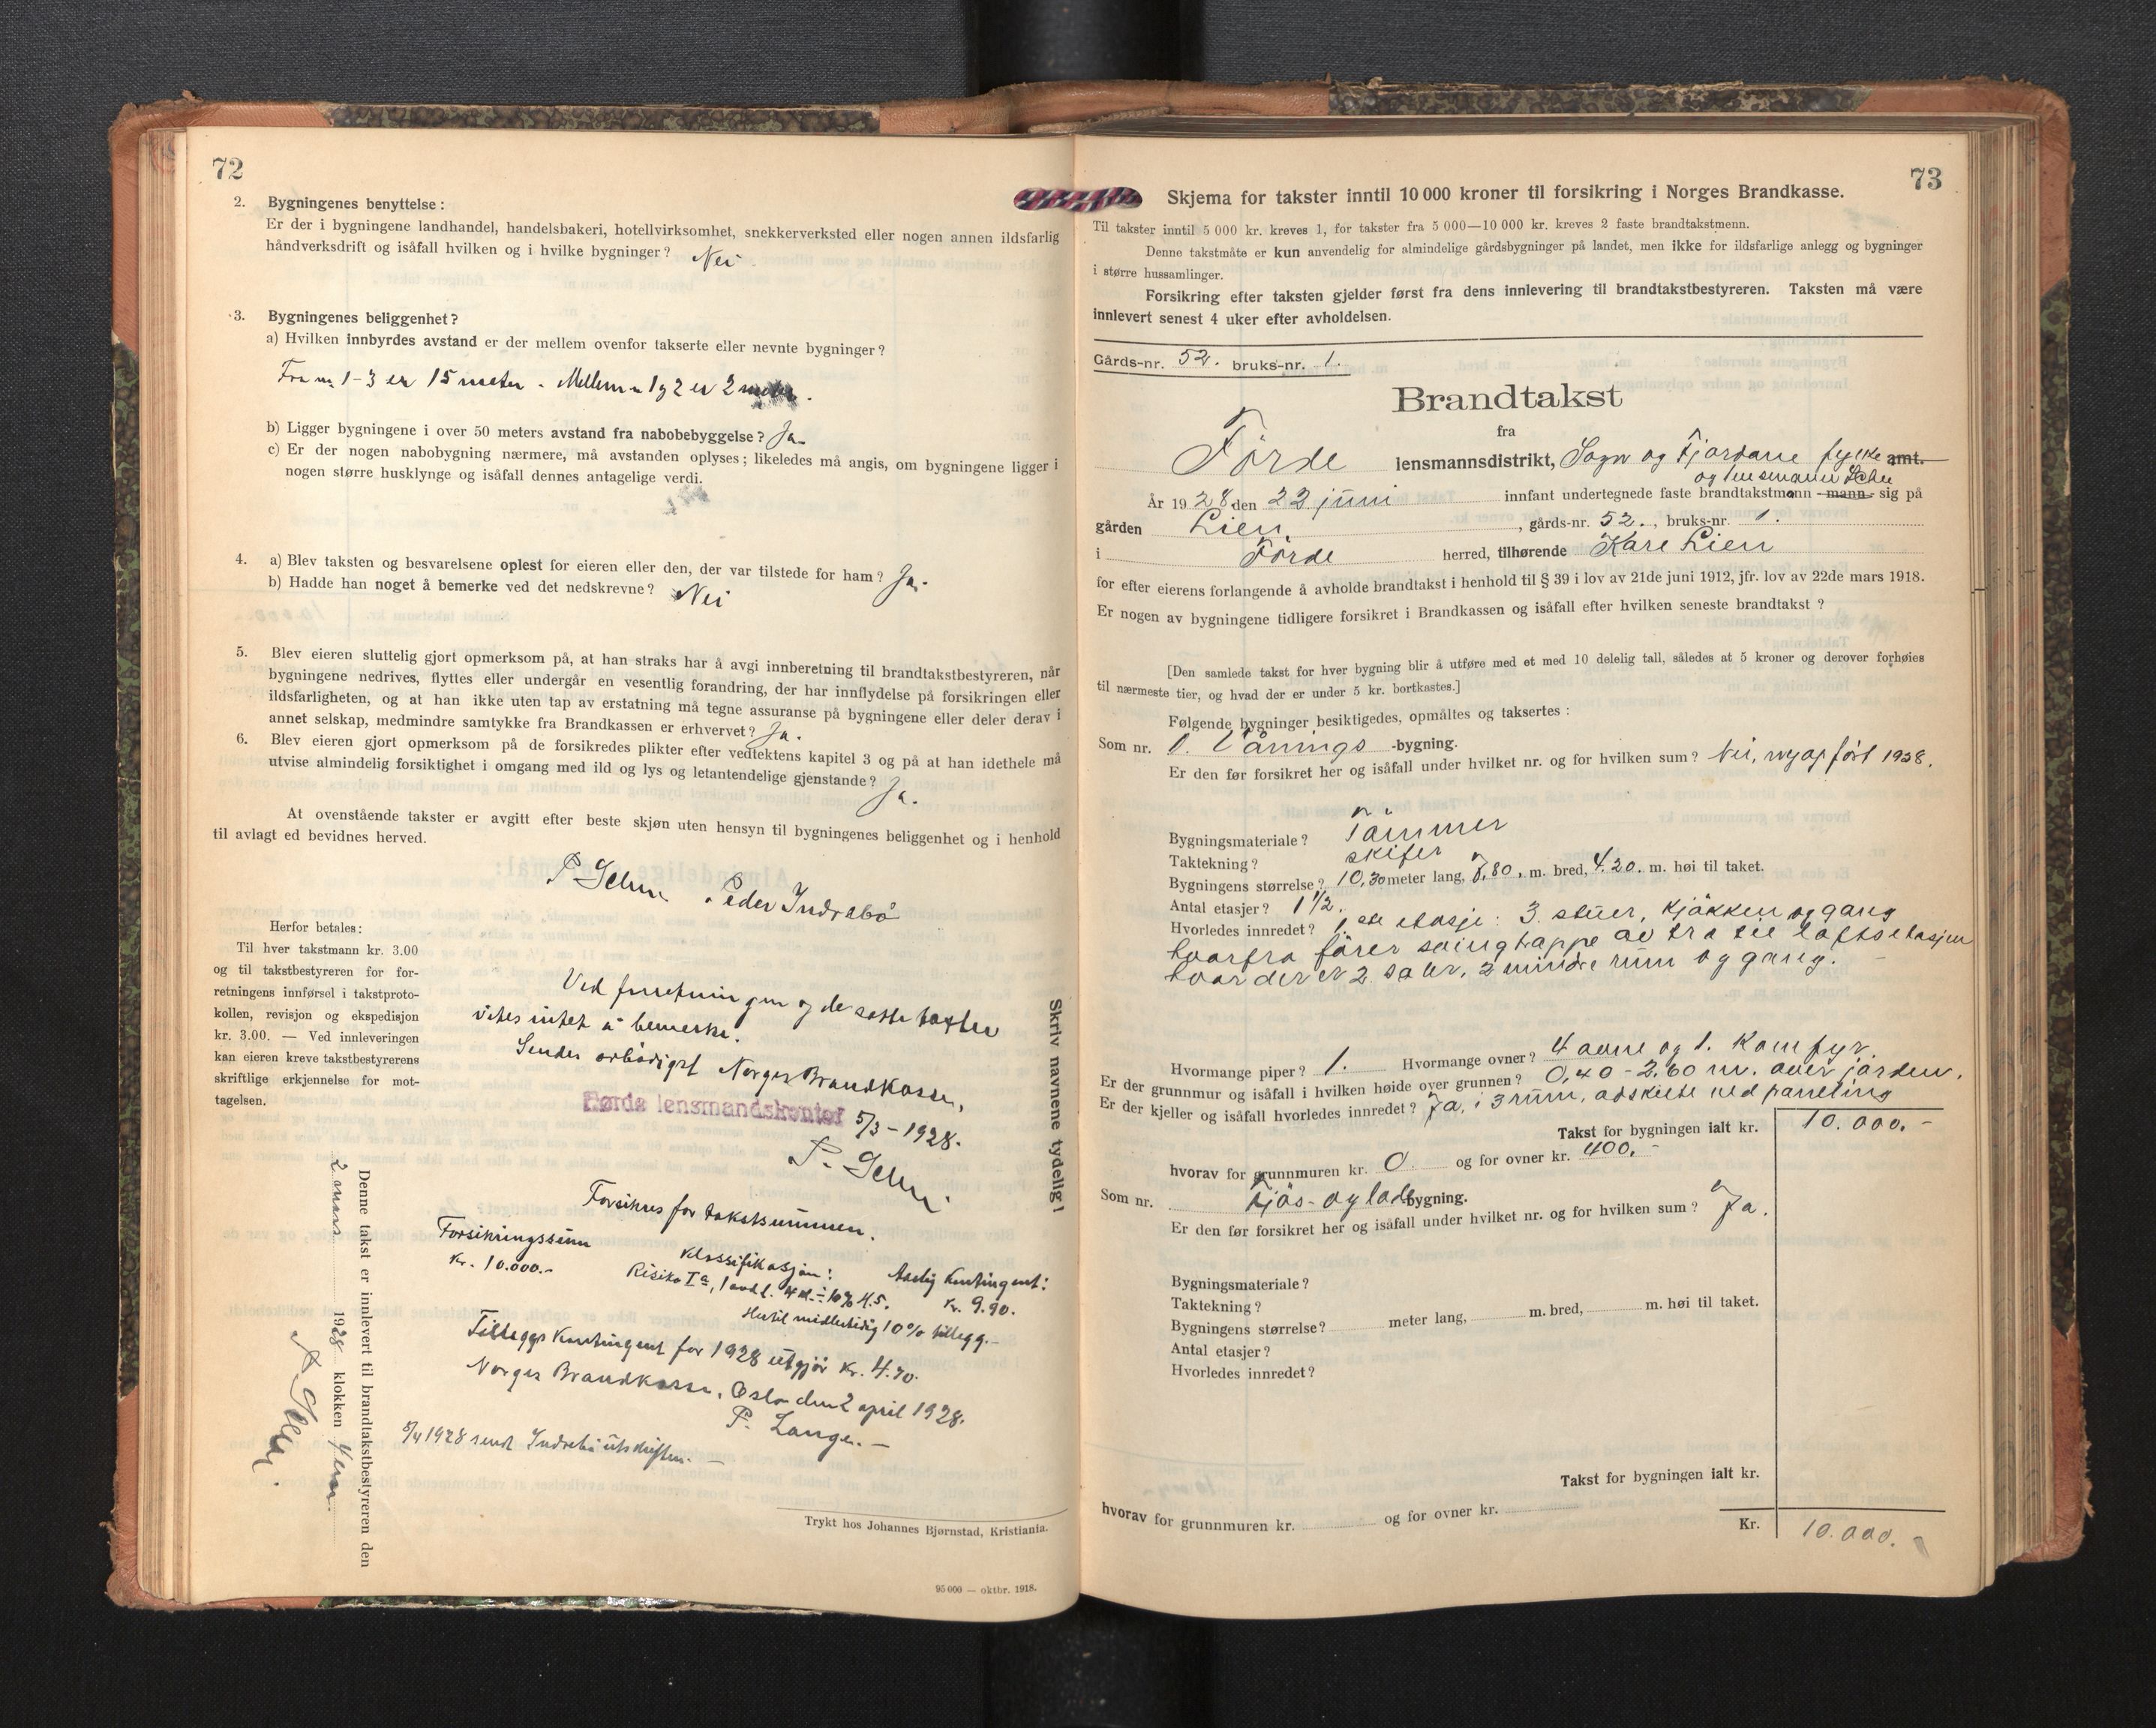 72
2. Bygningenes benyttelse:
Er der i bygningene landhandel, handelsbakeri, hotellvirksomhet, snekkerverksted eller nogen annen ildsfarlig
håndverksdrift og isåfall hvilken og i hvilke bygninger? Nei
3. Bygningenes beliggenhet?
a) Hvilken innbyrdes avstand er der mellem ovenfor takserte eller nevnte bygninger?
Fra nr 1-3 er 15 meter. Mellem nr 1 og 2 er 2 meter.
b) Ligger bygningene i over 50 meters avstand fra nabobebyggelse? Ja.
c) Er der nogen nabobygning nærmere, må avstanden oplyses; likeledes må angis, om bygningene ligger i
nogen større husklynge og isåfall dennes antagelige verdi.
4. a) Blev taksten og besvarelsene oplest for eieren eller den, der var tilstede for ham? Ja.
b) Hadde han noget å bemerke ved det nedskrevne? Nei
5. Blev eieren sluttelig gjort opmerksom på, at han straks har å avgi innberetning til brandtakstbestyreren, når
bygningene nedrives, flyttes eller undergår en vesentlig forandring, der har innflydelse på forsikringen eller
ildsfarligheten, og at han ikke uten tap av erstatning må tegne assuranse på bygningene eller deler derav i
annet selskap, medmindre samtykke fra Brandkassen er erhvervet? Ja.
6. Blev eieren gjort opmerksom på de forsikredes plikter efter vedtektens kapitel 3 og på at han idethele må
utvise almindelig forsiktighet i omgang med ild og lys og letantendelige gjenstande? Ja.
At ovenstående takster er avgitt efter beste skjøn uten hensyn til bygningenes beliggenhet og i henhold
til avlagt ed bevidnes herved.
Peder Indrebö
Herfor betales:
Til hver takstmann kr. 3.00
og til takstbestyreren for for-
retningens innførsel i takstproto-
kollen, revisjon og ekspedisjon
kr. 3.00. — Ved innleveringen
kan eieren kreve takstbestyrerens
skriftlige erkjennelse for mot-
tagelsen.
Ved forretningen og de satte takster
vites intet å bemerke.
Sendes ærbödigst Norges Brandkasse,
Førde lensmandskontor 5/3-1928.
Forsikres for takstsummen.
Forsikringssum Klassifikasjon: Aarlig Kontingent:
Kr. 10.000.- Risiko Ia, 1 avd. 4 kl. ÷ 10% H.5. Kr. 9.90.
Hertil midlertidig 10% tillegg.-
Tilleggs Kontingent for 1928 utgjör Kr. 4.70.
Norges Brandkasse, Oslo den 2 april 1928.
P. Lange.-
5/4 1928 sendt Indrebö utskriften.-
Denne takst er innlevert til brandtakstbestyreren den
2 mars 1928 klokken
Skriv navnene tydelig!
Trykt hos Johannes Bjørnstad, Kristiania.
95 000 — oktbr. 1918.
73
Skjema for takster inntil 10 000 kroner til forsikring i Norges Brandkasse.
Til takster inntil 5 000 kr. kreves 1, for takster fra 5 000—10 000 kr. kreves 2 faste brandtakstmenn.
Denne takstmåte er kun anvendelig for almindelige gårdsbygninger på landet, men ikke for ildsfarlige anlegg og bygninger
i større hussamlinger.
Forsikring efter taksten gjelder først fra dens innlevering til brandtakstbestyreren. Taksten må være
innlevert senest 4 uker efter avholdelsen.
Gårds-nr. 52. bruks-nr. 1.
Brandtakst
fra
Förde lensmannsdistrikt, Sogn og Fjordane fylke amt.
og lensmann
År 1928 den 22 juni innfant undertegnede faste brandtakstmenn -mann- sig på
gården Lien, gårds-nr. 52., bruks-nr. 1.
i Förde herred, tilhørende Kare Lien
for efter eierens forlangende å avholde brandtakst i henhold til § 39 i lov av 21de juni 1912, jfr. lov av 22de mars 1918.
Er nogen av bygningene tidligere forsikret i Brandkassen og isåfall efter hvilken seneste brandtakst?
[Den samlede takst for hver bygning blir å utføre med et med 10 delelig tall, således at 5 kroner og derover forhøies
til nærmeste tier, og hvad der er under 5 kr. bortkastes.]
Følgende bygninger besiktigedes, opmåltes og taksertes:
Som nr. 1. Vånings-bygning.
Er den før forsikret her og isåfall under hvilket nr. og for hvilken sum? Nei, nyopfört 1928.
Bygningsmateriale? Tömmer
Taktekning? skifer
Bygningens størrelse? 10,30 meter lang, 7,80, m. bred, 4.20. m. høi til taket.
Antal etasjer? 1 1/2.
Hvorledes innredet? 1ste etasje: 3 stuer, kjökken og gang
hvorfra förer svingtrappe av tre til loftsetasjen
hvor der er 2 saler, 2 mindre rum og gang.
Hvormange piper? 1. Hvormange ovner? 4 ovne og 1. Komfyr
Er der grunnmur og isåfall i hvilken høide over grunnen? 0,40-2,60 m. over jorden.
Er der kjeller og isåfall hvorledes innredet? Ja, i 3 rum, adskilte ved paneling
Takst for bygningen ialt kr. 10.000.-
hvorav for grunnmuren kr. 0. og for ovner kr. 400.-
Som nr. Fjös- og lade bygning.
Er den før forsikret her og isåfall under hvilket nr. og for hvilken sum? Ja.
Bygningsmateriale?
Taktekning?
Bygningens størrelse? meter lang, m. bred, m. høi til taket.
Antal etasjer?
Hvorledes innredet?
Takst for bygningen ialt kr.
hvorav for grunnmuren kr. og for ovner kr.
Kr. 10.000.-